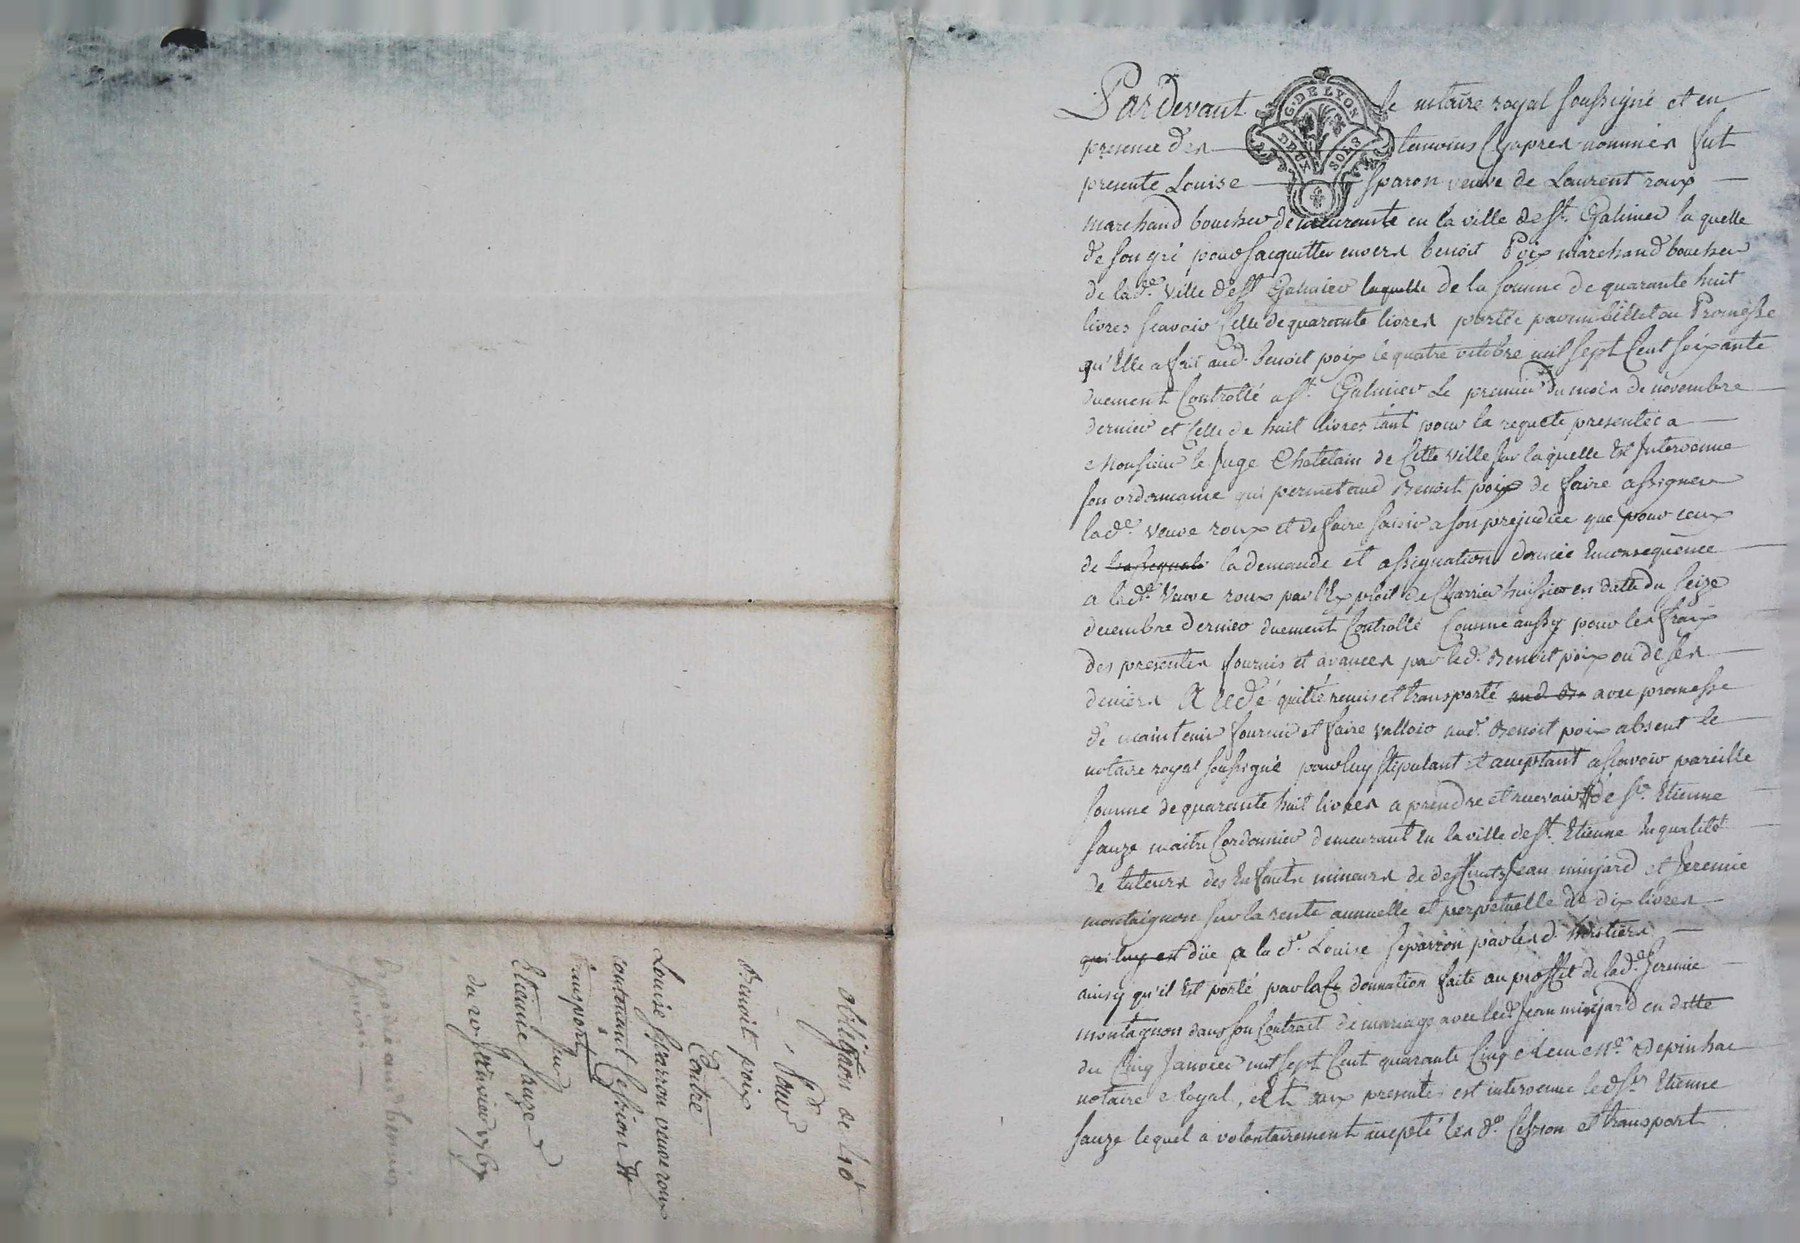 Pardevant le notaire royal soussigné et en
presence des temoins Cyapres nommés fut
presente Louise Sparon veuve de Laurent roux
marchand boucher demeurante en la ville de St. Galmier laquelle
de son gré pour sacquitter envers benoit Poix marchand boucher
de lade. ville de St Galmier laquelle de la somme de quarante huit
livres scavoir Celle de quarante livres portée par un billet ou Promesse
qu'Elle a fait aud. benoit poix le quatre octobre mil sept Cent soixante
duement Controllé a St. Galmier Le premier du mois de novembre
dernier et Celle de huit livres tant pour la requete presentée a
Monsieur le Juge Chatelain de Cette ville sur laquelle Est Intervenue
son ordonnance qui permet aud Benoit poix de faire assigner
lade. veuve roux et de faire saisir a son prejudice que pour ceux
de la demande et assignation donnée Enconsequence
a lade. Veuve roux par l'Exploit de Charrier huissier en datte du seize
decembre dernier duement Controllé Comme aussy pour les fraix
des presentes fournis et avancés par led. Benoit poix ou de ses
deniers A cedé quitté remis et transporté aud. avec promesse
de maintenir fournir et faire valloir aud. Benoit poix absent le
notaire royal soussigné pour luy stipulant et acceptant ascavoir pareille
somme de quarante huit livres a prendre et recevoir de Sr. Etienne
sauze maitre Cordonnier demeurant En la ville de St. Etienne En qualité
de tuteurs des Enfants mineurs de deffunts Jean minjard et Jeremie
montaignon sur la rente annuelle et perpetuelle de dix livres
qui luy est düe a la de. Louise Separron par les d. heritiers
ainsy qu'il Est porté par la donnation faite au proffit de lade. Jeremie
montagnon dans son Contrat de mariage avec led Jean minjard en datte
du Cinq Janvier mil sept Cent quarante Cinq et Me. Depinhac
notaire Royal, et aux presentes est intervenu led. Sr. Etienne
sauze lequel a volontairement accepté les de. Cession et transport
obligation de 48#
Pour Sr
Benoit poix
Contre
Louise sparron veuve roux
contenant Cession &
transport
sur
Etienne sauze
du 20 Janvier 1767